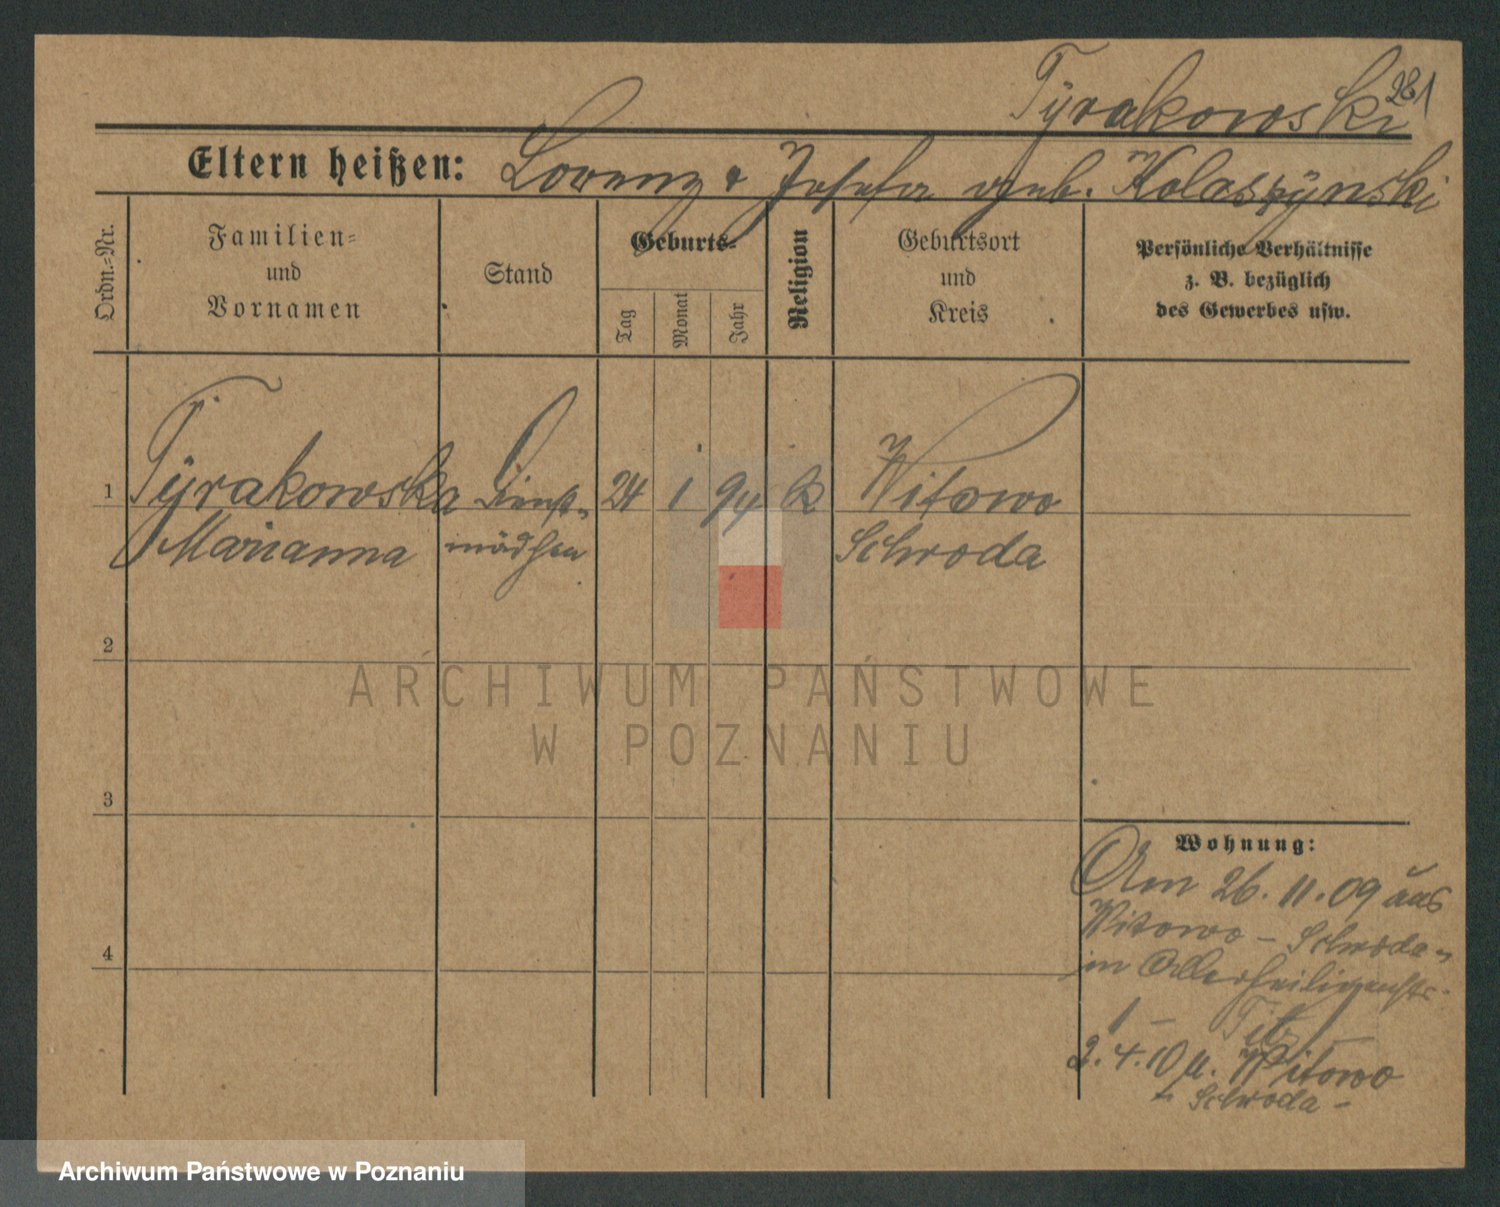 Tyrakowski 281
Eltern heißen: Lorenz & Josefa geb. Kolaszynski
Ordn.-Nr.
Familien-
und
Vornamen
Stand
Geburts-
Tag
Monat
Jahr
Religion
Geburtsort
und
Kreis
Persönliche Verhältnisse
z. B. bezüglich
des Gewerbes usw.
1 Tyrakowska Dienst- 24 1 94 k Witowo
Marianna mädchen Schroda
2
ARCHIWUM PAŃSTWOWE
W POZNANIU
3
Wohnung:
Am 26. 11. 09 aus
Witowo - Schroda -
in Allerheiligenstr.
1 -
4
2. 4. 10 n. Witowo
Schroda -
Archiwum Państwowe w Poznaniu